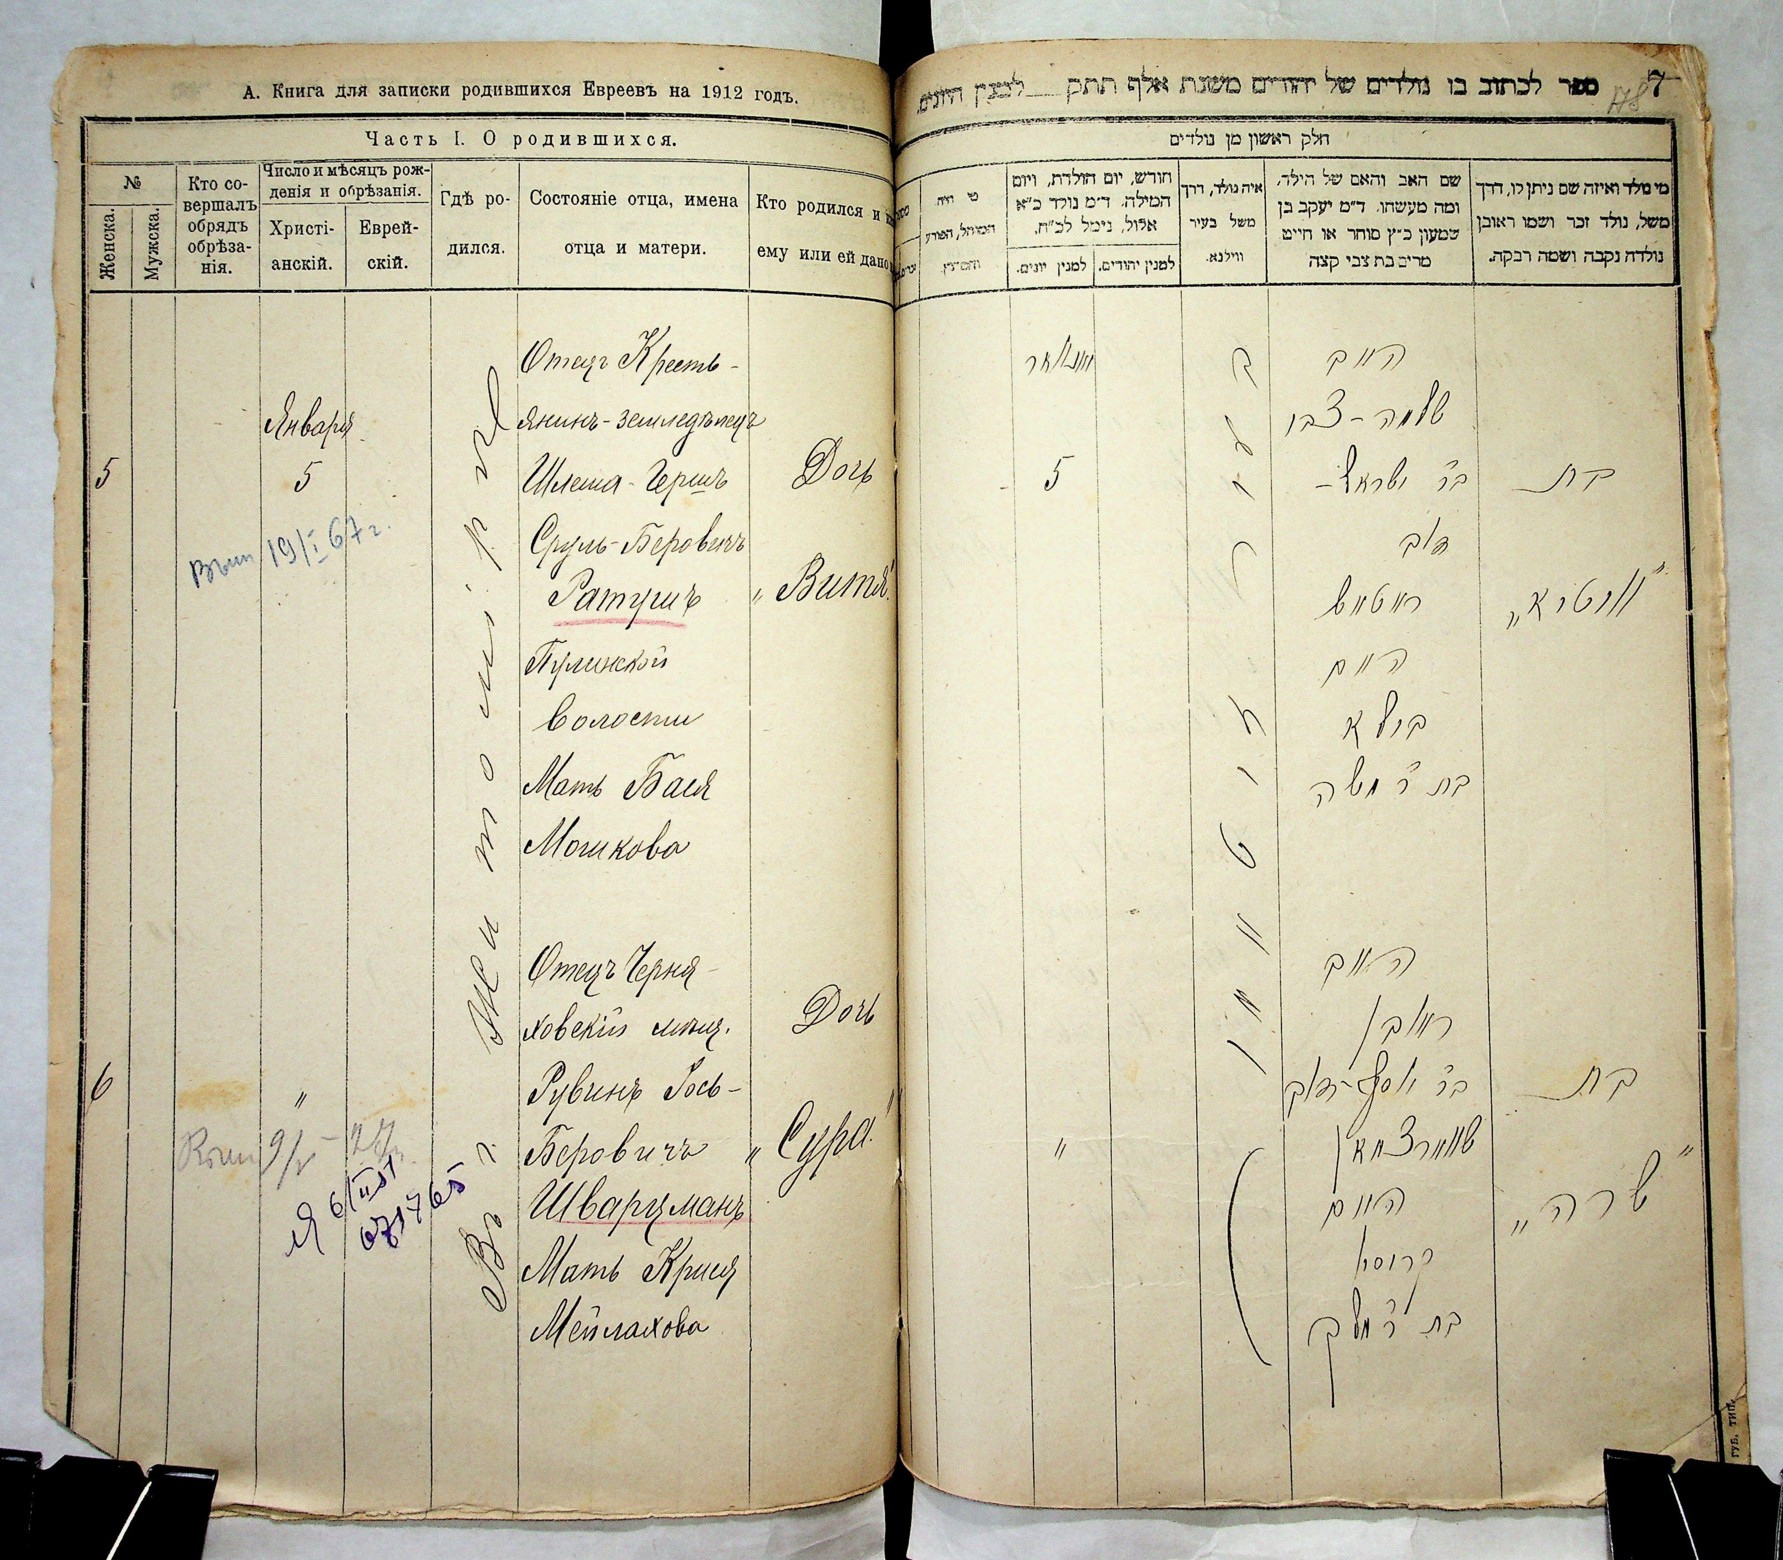 А. Книга для записки родившихся Евреевъ на 1912 годъ.
Часть I. О родившихся.
№
Женска.
Мужска.
Кто со-
вершалъ
обрядъ
обрѣза-
нія.
Число и мѣсяцъ рож-
денія и обрѣзанія.
Христі-
анскій.
Еврей-
скій.
Гдѣ ро-
дился.
Состояніе отца, имена
отца и матери.
Кто родился и
ему или ей дано
5
Января
5
Въ г. Житомірѣ
Отецъ Кресть-
янинъ-земледѣлецъ
Шлема-Гершъ
Сруль-Беровичъ
Ратушъ
Пулинской
волости
Мать Бася
Мошкова
Дочь
„Витя"
19/I 67 г.
6
"
Отецъ Черня-
ховскій мѣщ.
Рувинъ Іось-
Беровичъ
Шварцманъ
Мать Крися
Мейлахова
Дочь
„Сура"
ספר לכתוב בו נולדים של יהודים משנת אלף תתק
7
178
חלק ראשון מן נולדים
מי נולד ואיזה שם ניתן לו, דרך
משל, נולד זכר ושמו ראובן
נולדה נקבה ושמה רבקה.
שם האב והאם של הילד,
ומה מעשהו. ד״מ יעקב בן
שמעון כ״ץ סוחר או חייט
מרים בת צבי קצה
איה נולד, דרך
משל בעיר
ווילנא.
חודש, יום הולדת, ויום
המילה. ד״מ נולד כ״א
אלול, נימל לכ״ח.
למנין יהודים.
למנין יונים.
מי היה
המוהל, הפורע
והמוצץ.
יאנואר
5
האב
שלמה-צבי
בר ישראל-
דוב
ראטוש
האם
ביילא
בת ר׳ משה
בת
„וויטיא"
"
האב
ראובן
בר יוסף-דוב
שווארצמאן
האם
קרוסא
בת ר׳ מלך
בת
„שרה"
ГУБ. ТИП.